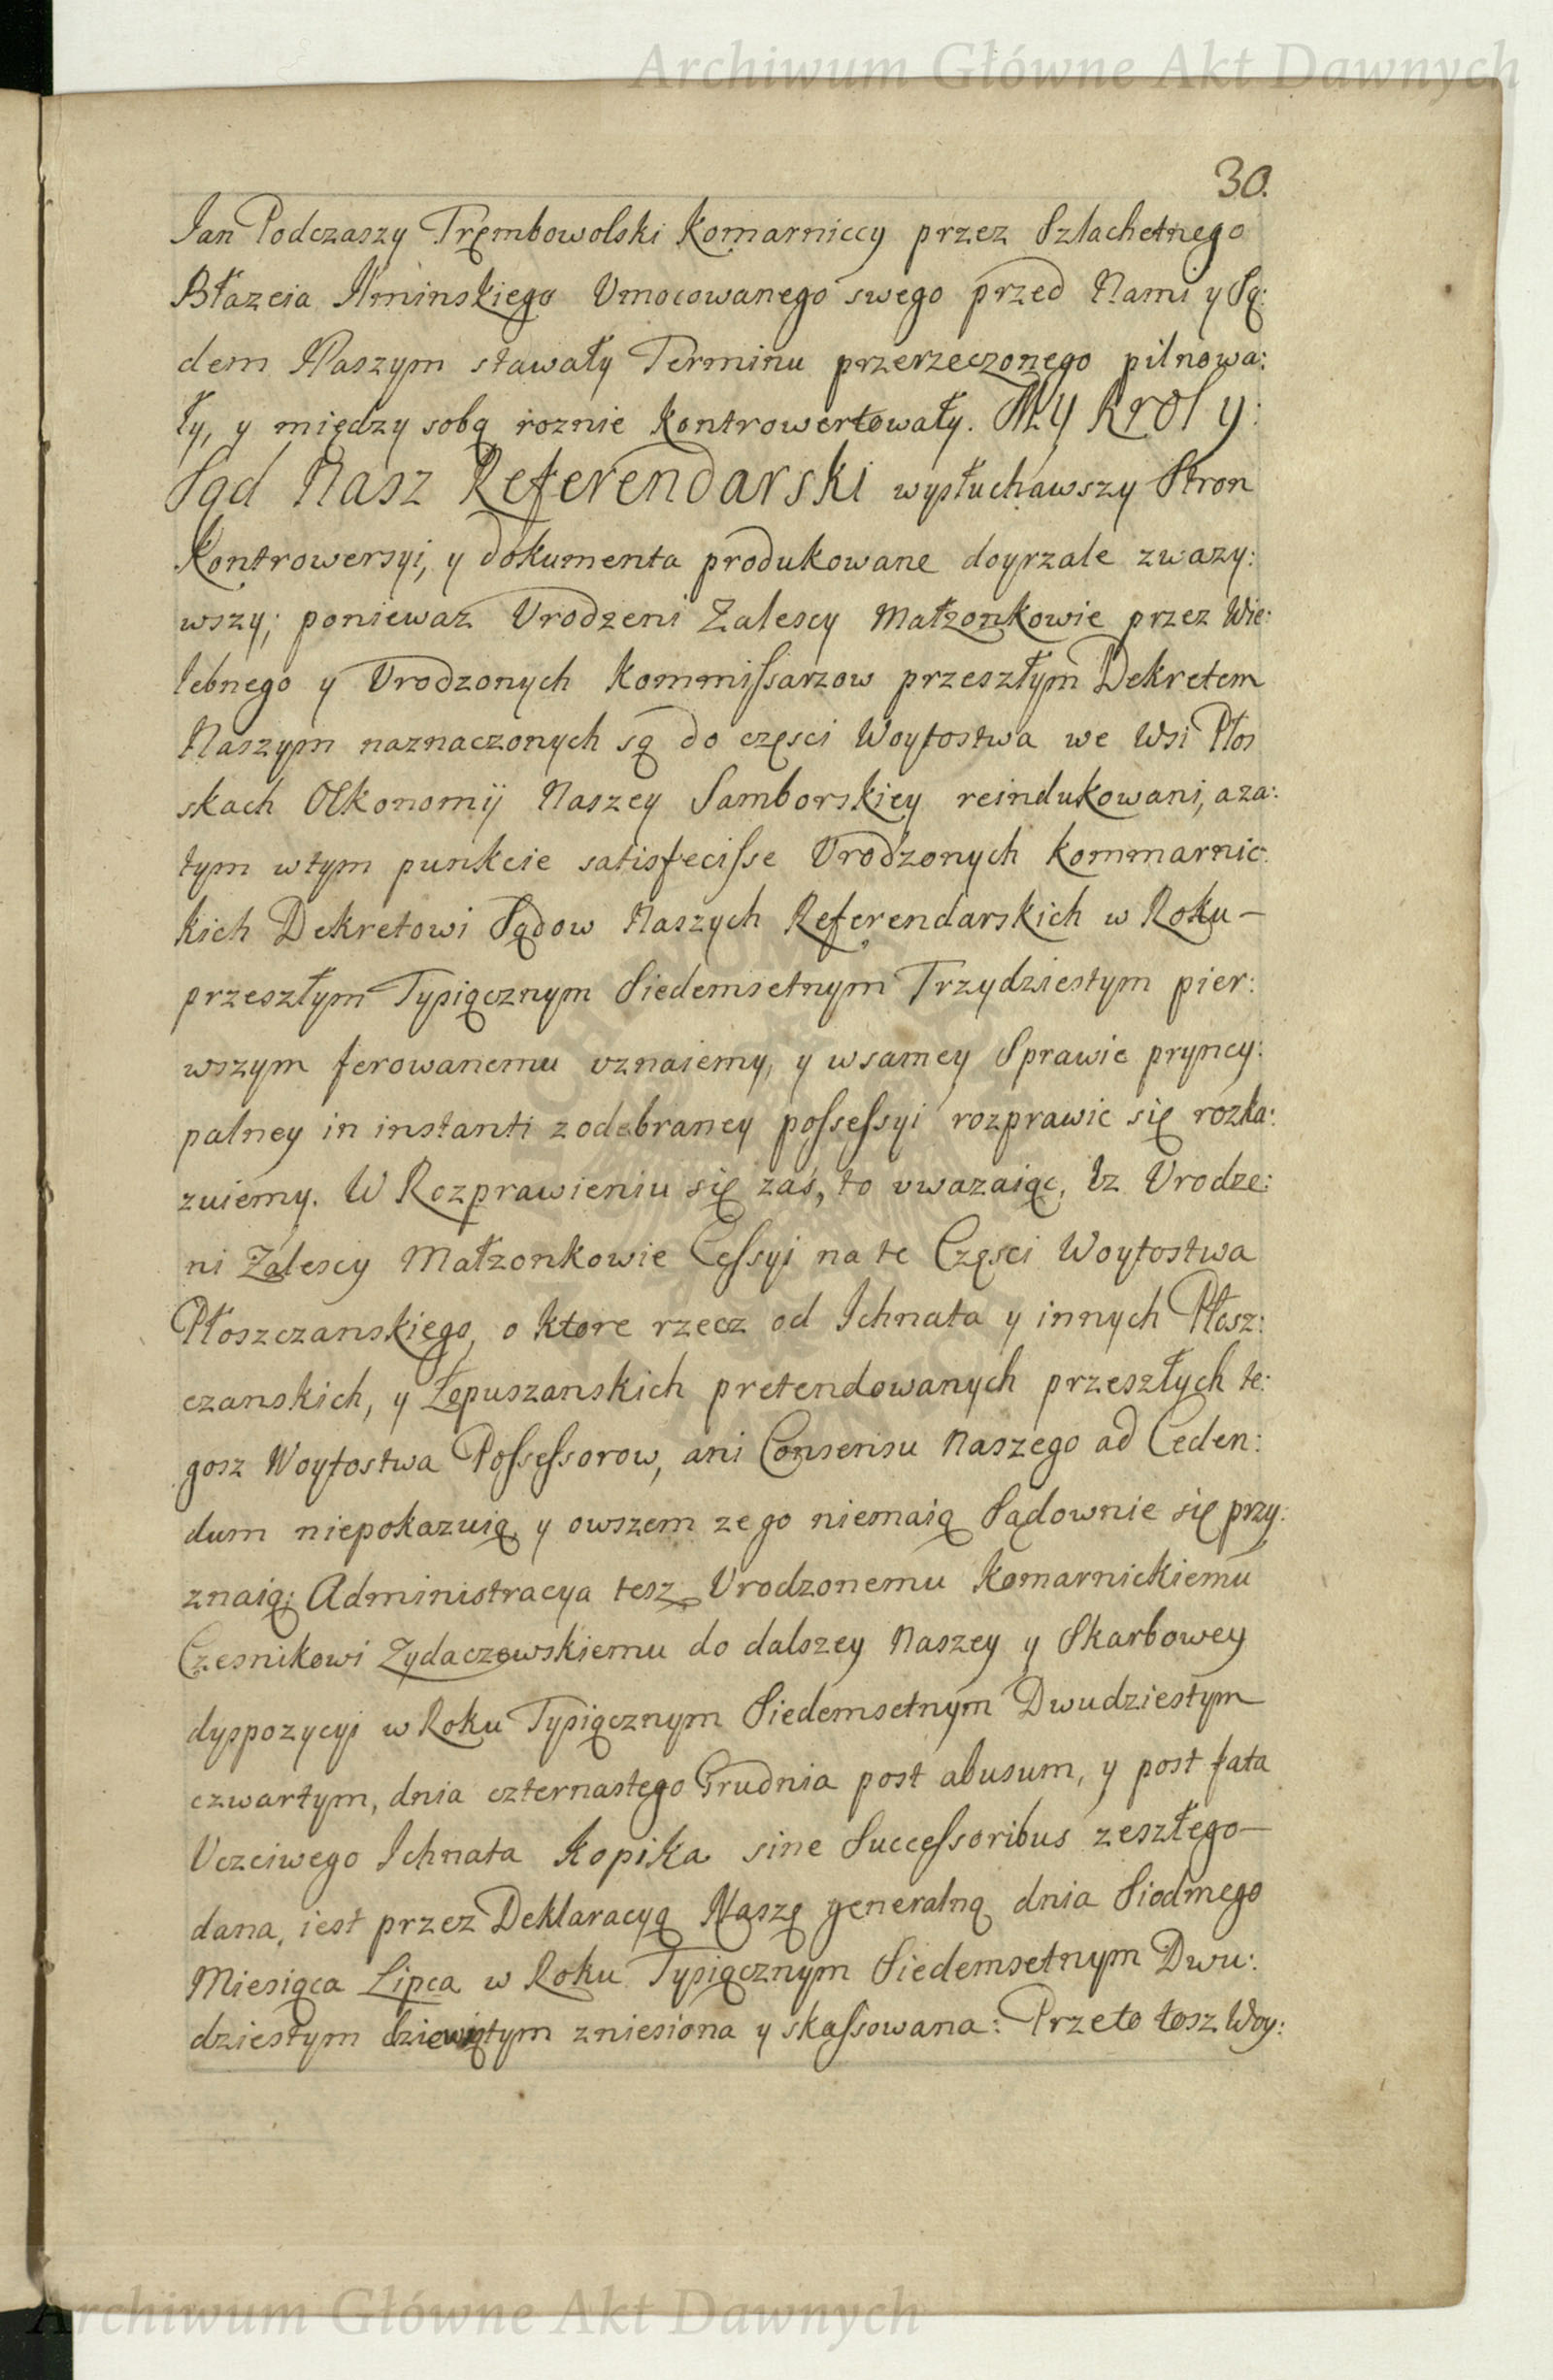 Archiwum Główne Akt Dawnych
30.
Jan Podczaszy Trębowolski Komarniccy przez Szlachetnego
Błazeia Ilminskiego Umocowanego swego przed Nami y Są:
dem Naszym stawały Terminu przerzeczonego pilnowa:
ły, y między sobą roznie kontrowertowały. My Krol y:
Sąd Nasz Referendarski wysłuchawszy Stron
Kontrowersyi, y dokumenta produkowane doyrzale zwazy:
wszy; poniewaz Urodzeni Zalescy Małzonkowie przez Wie:
lebnego y Urodzonych Kommissarzow przeszłym Dekretem
Naszym naznaczonych są do częsci Woytostwa we Wsi Płos
skach Oekonomij Naszey Samborskiey reindukowani, a za:
tym w tym punkcie satisfecisse Urodzonych Kommarnic:
kich Dekretowi Sądow Naszych Referendarskich w Roku –
przeszłym Tysiącznym Siedemsetnym Trzydziestym pier:
wszym ferowanemu uznaiemy, y w samey Sprawie pryncy:
palney in instanti z odebraney possessyi rozprawic się rozka:
zuiemy. W Rozprawieniu się zaś, to uwazaiąc, Iz Urodze:
ni Zalescy Małzonkowie Cessyi na te Częsci Woytostwa
Płoszczanskiego, o ktore rzecz od Ichnata y innych Płosz:
czanskich, y Łopuszanskich pretendowanych przeszłych te:
gosz Woytostwa Possessorow, ani Consensu Naszego ad Ceden:
dum niepokazuią, y owszem ze go niemaią Sądownie się przy:
znaią; Administracya tesz Urodzonemu Komarnickiemu
Czesnikowi Zydaczowskiemu do dalszey Naszey y Skarbowey
dyspozycyi w Roku Tysiącznym Siedemsetnym Dwudziestym
czwartym, dnia czternastego Grudnia post abusum, y post fata
Uczciwego Ichnata Kopika sine Successoribus zeszłego –
dana, iest przez Deklaracyą Naszę generalną dnia Siodmego
Miesiąca Lipca w Roku Tysiącznym Siedemsetnym Dwu:
dziestym dziewiątym zniesiona y skassowana: Przeto tosz Woy:
Archiwum Główne Akt Dawnych